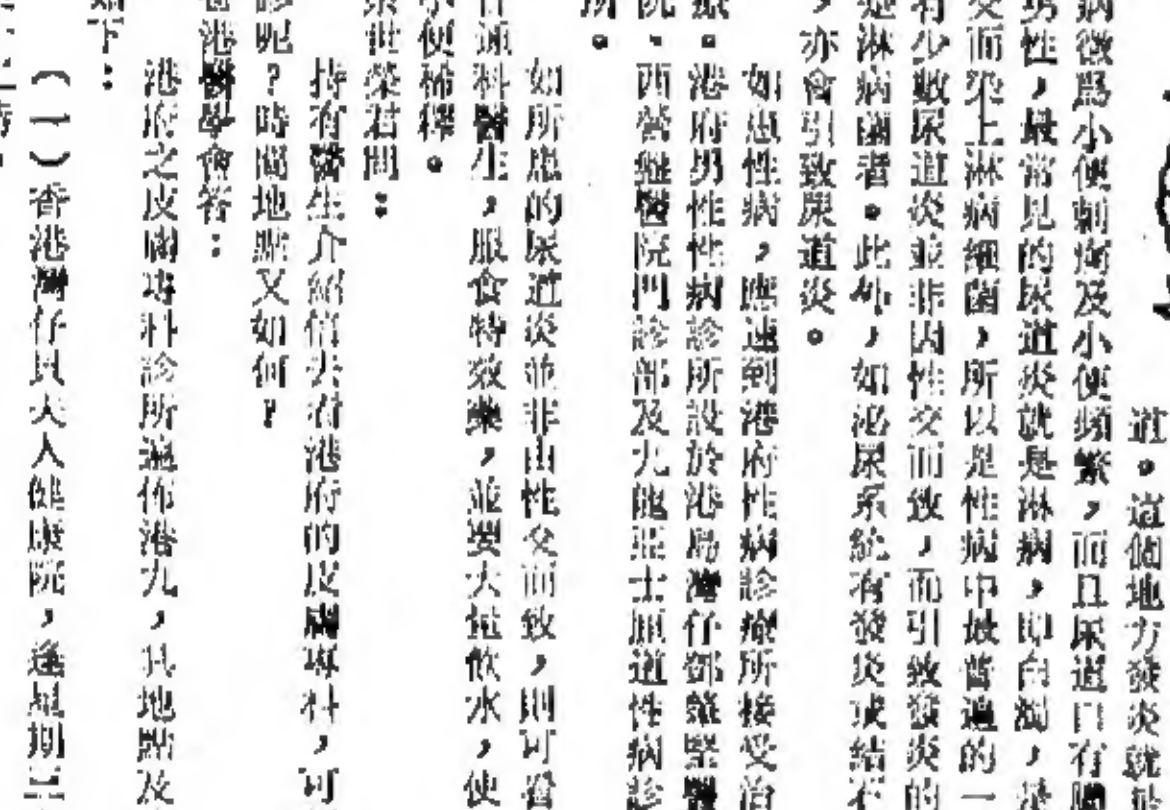 道。這個地方發炎就是
病徵爲小便刺痛及小便頻繁，而且尿道口有膿
男性，最常見的尿道炎就是淋病，即白濁，是
交而染上淋病細菌，所以是性病中最普遍的一
有少數尿道炎並非因性交而致，而引致發炎的
是淋病菌者。此外，如泌尿系統有發炎或結石
，亦會引致尿道炎。
如患性病，應速到港府性病診療所接受治
療。港府男性性病診所設於港島灣仔鄧肇堅醫
院、西營盤醫院門診部及九龍亞士厘道性病診
所。
如所患的尿道炎並非由性交而致，則可看
普通科醫生，服食特效藥，並要大量飲水，使
小便稀釋。
世榮君問：
持有醫生介紹信去看港府的皮膚專科，可
診呢？時間地點又如何？
香港醫學會答：
港府之皮膚專科診所遍佈港九，其地點及
如下：
（一）香港灣仔貝夫人健康院，逢星期三